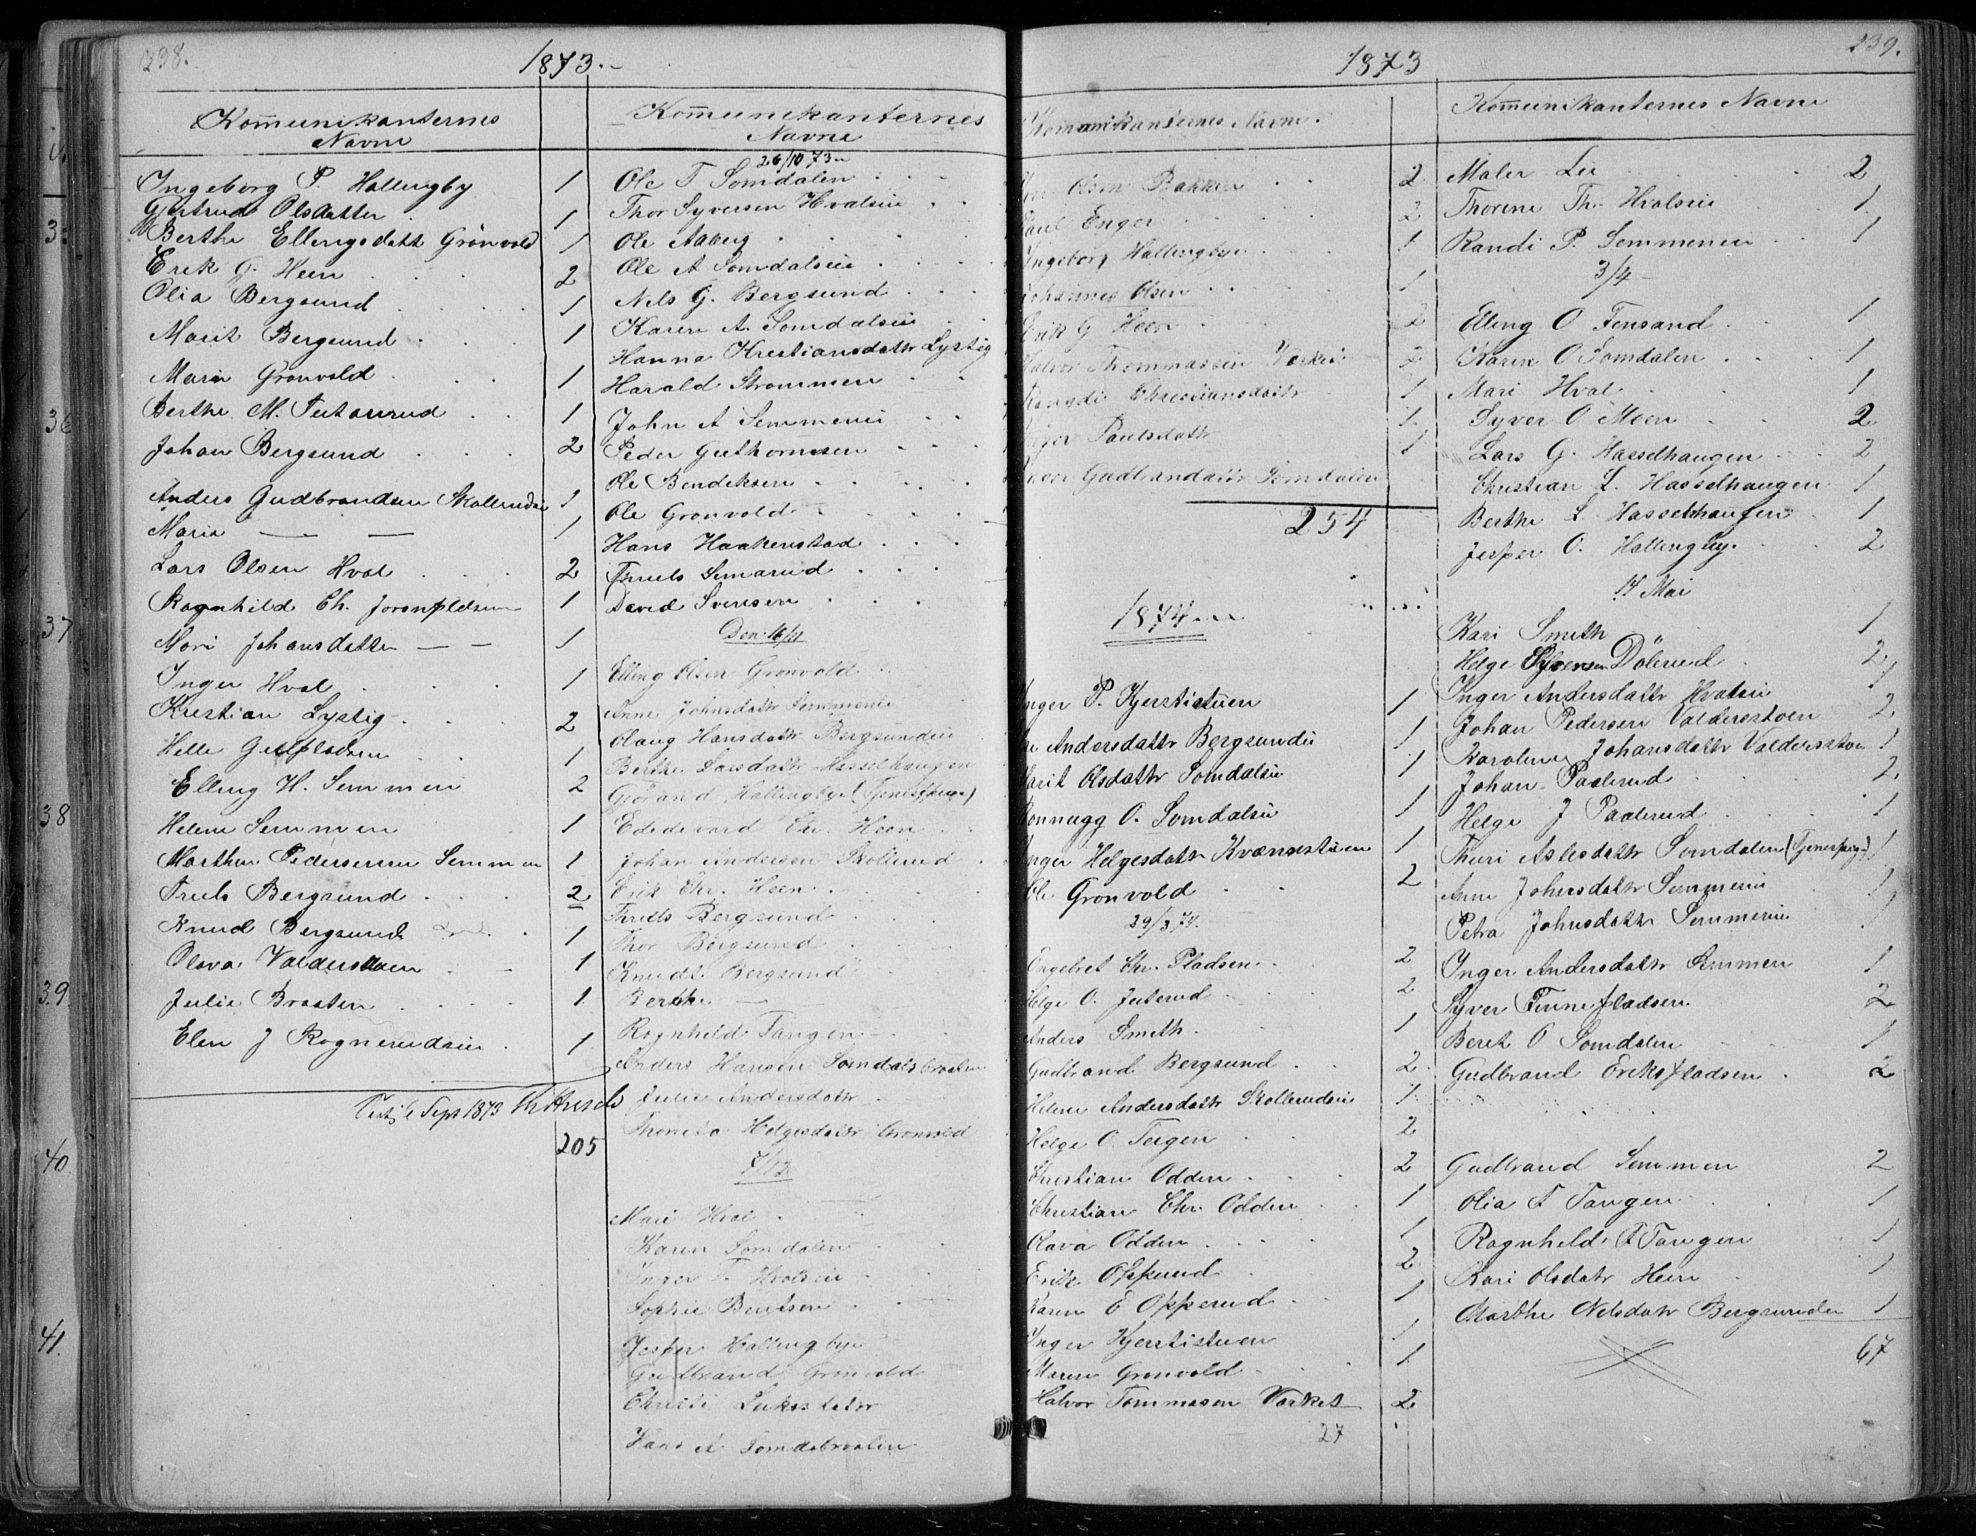 238.
1873.
Kommunikanternes
Navne
Ingeborg P. Hallingby 1
Gjertrud Olsdatter 1
Berthe Ellengsdatt Grönvold 1
Erik G. Heen 2
Olia Bergsund 1
Marit Bergsund 1
Maria Gronvold 1
Berthe M. 1
Johan Bergsund 2
Anders Gudbrandsen 1
Maria — — 1
Lars Olsen Hval 2
Ragnhild Ch. 1
Mari Johansdatter — — 1
Inger Hval 1
Kristian Lystig 2
Helle 1
Elling H. Semmen 2
Helene Semmen 1
Marthe Semmen 1
Truls Bergsund 2
Knud Bergsund 1
Olava 1
Julie Braaten 1
Elen J Rognerudeie 1
Sept 1873
205
Kommunikanternes
Navne
26/10 73
Ole T Somdalen
Thor Syversen Hvalseie
Ole Aaberg
Ole A Somdalseie
Nels G. Bergsund
Karen A. Somdalseie
Hanna Kristiansdatr Lystig
Harald Strommen
John A Semmeneie
Peder Guthormsen
Ole Bendeksen
Ole Gronvold
Hans Haakenstad
Truls Semerud
David Svensen
Den 16/11
Elling Olsen Gronvold
Anne Johnsdatr Semmeneie
Olaug Hansdatr Bergsundeie
Berthe Larsdatr Hasselhaugen
Hallingbye (Tjenestpige)
Chr. Heen
Johan Andersen
Erik Chr. Heen
Thruls Bergsund
Thor Bergsund
Knudt Bergsund
Berthe —
Ragnhild Tangen
Anders Hansen Somdalsbraaten
Julie Andersdatr
Helgesdatr Gronvold
7/12
Mari Hval
Karen Somdalen
Inger T. Hvalseie
Sophie Bentsen
Jesper Hallingbye
Gudbrand Gronvold
Hans A Somdsbraaten
1873
239.
Kommunikanternes Navne.
Olsen Bakken 2
Paul Enger 2
Ingeborg Hallingbye 1
Johannes Olsen 1
Erik G Heen 2
Halvor Thommassen 2
Ragndi Christiansdatr 1
Paulsdatr 1
Gudbrandsdatr Somdalen 1
254
1874
Inger P. Kjerstistuen 1
Andersdatr Bergsundeie 1
Marit Olsdatr Somdalseie 1
Ronnaug O. Somdalseie 1
Inger Helgesdatr 1
Ole Gronvold 2
29/3 74.
Engebret Chr. Pladsen 2
Helge O. Juterud 2
Anders Smeth 1
Gudbrand Bergsund 2
Helene Andersdatr Skollerudeie 1
Helge O. Teigen 2
Christian Odden 2
Christian Chr. Odden 1
Olava Odden 1
Erik Opperud 2
Karen E Opperud 1
Inger Kjerstistuen 1
Maren Gronvold 1
Halvor Tommasen 2
27
Kommunikanternes Navne
Maler Lie 2
Thorine Th. Hvalseie 1
Randi P. Semmeneie 1
3/4
Elling O Fonsand 1
Karen O Somdalen 1
Mari Hval 1
Syver O Moen 2
Lars G. Hasselhaugen 2
Christian L. Hasselhaugen 1
Berthe L. Hasselhaugen 1
Jesper O. Hallingby 2
14 Mai
Kari Smeth 1
Helge Syversen Dölerud 2
Inger Andersdatr Hvalseie 1
Johan Pedersen 2
Karoline Johansdatr 1
Johan Paalerud 2
Helge J Paalerud 1
Thuri Aslesdatr Somdalen (Tjenstpige) 1
Anne Johnsdatr Semmeneie 1
Petra Johnsdatr Semmeneie 1
Inger Andersdatr Semmen 1
Syver Finnepladsen 2
Beret O Somdalen 1
Gudbrand Erikspladsen 2
Gudbrand Semmen 2
Olia T Tangen 1
Ragnhild T Tangen 1
Kari Olsdatr Heen 1
Marthe Nelsdatr Bergsundeie 1
67
3
36
37
38
39
40
41.